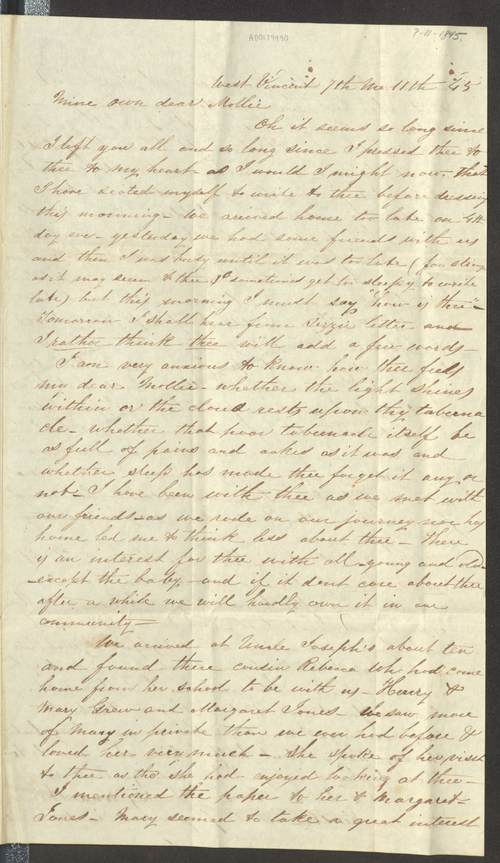 7-11-1845.
A00179490
West Vincent 7th Mo 11th /45
Mine own dear Mollie
Oh it seems so long since
I left you all and so long since I pressed thee to
thee to my heart as I would I might now. that
I have seated myself to write to thee before dressing
this morning - We arrived home too late on 6th
day eve - yesterday we had some friends with us
and then I was busy until it was too late (for strange
as it may seem to thee I do sometimes get too sleepy to write
late) but this morning I must say "how is thee" -
Tomorrow I shall hear from Lizzie letter and
I rather think thee will add a few words -
I am very anxious to know how thee feels
my dear Mollie - whether the light shines
within or the cloud rests upon thy taberna
cle - whether that poor tabernacle itself be
as full of pains and aches as it was and
whether sleep has made thee forget it any or
not - I have been with thee as we met with
our friends - as we rode on our journey nor has
home led me to think less about thee - There
is an interest for thee with all - young and old -
- except the baby - and if it dont care about thee
after a while we will hardly own it in our
community -
We arrived at Uncle Joseph's about ten
and found there cousin Rebecca who had come
home from her school to be with us - Henry &
Mary Grew and Margaret Jones - We saw more
of Mary in private than we ever had before &
loved her very much - She spoke of her visit
to thee as tho' she had enjoyed looking at thee -
I mentioned the paper to her & Margaret
Jones - Mary seemed to take a great interest